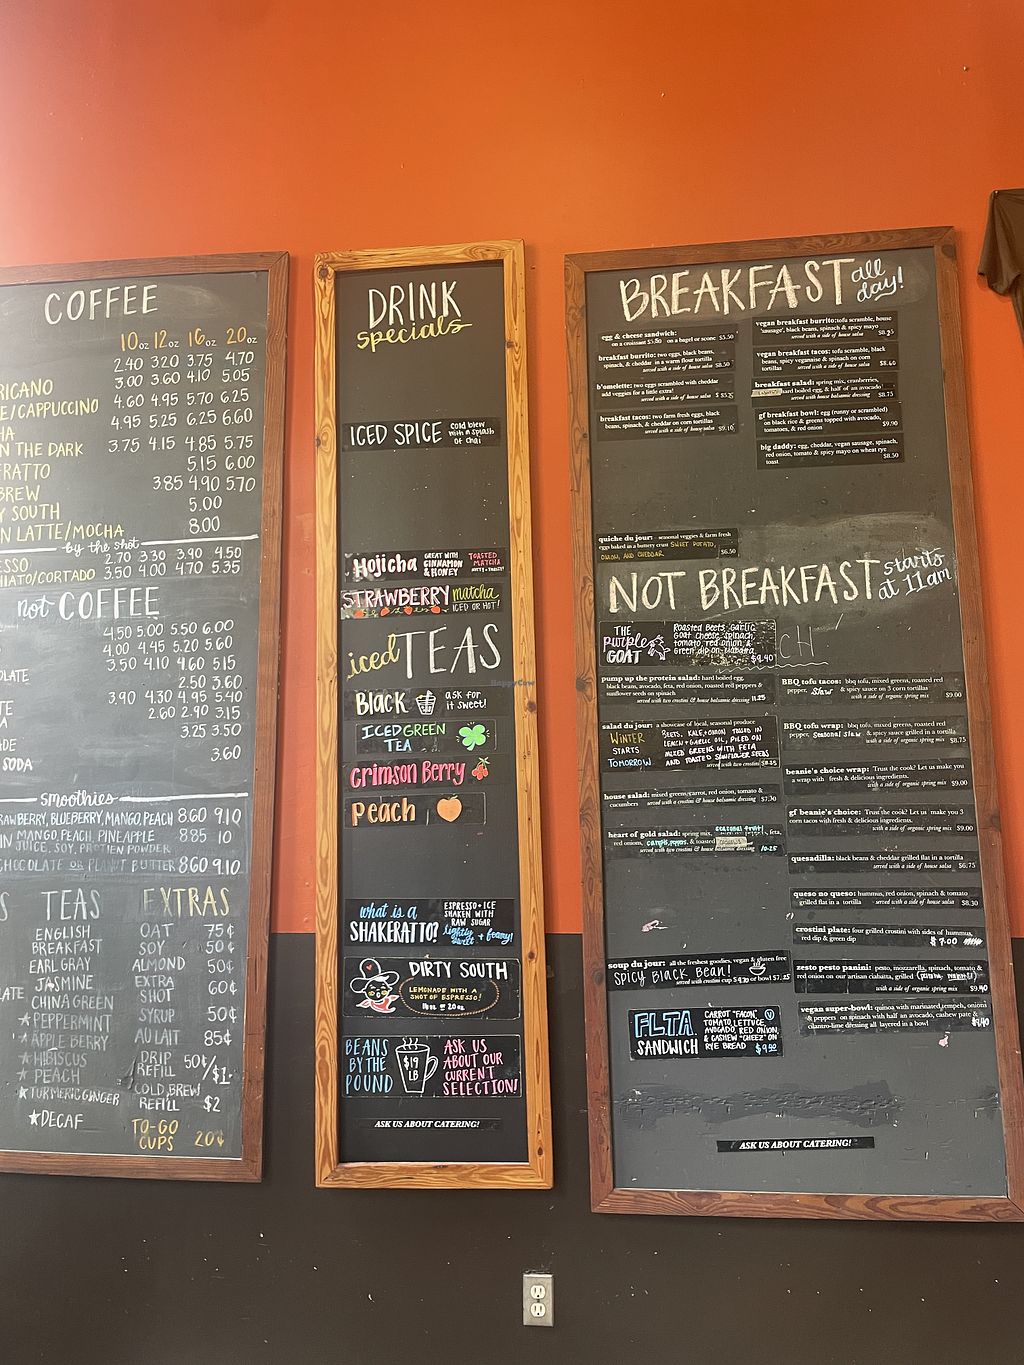 COFFEE
10oz 12oz 16oz 20oz
2.40 3.20 3.75 4.70
RICANO 3.00 3.60 4.10 5.05
E/CAPPUCCINO 4.60 4.95 5.70 6.25
HA 4.95 5.25 6.25 6.60
N THE DARK 3.75 4.15 4.85 5.75
FRATTO 5.15 6.00
BREW 3.85 4.90 5.70
Y SOUTH 5.00
N LATTE/MOCHA 8.00
by the shot
ESSO 2.70 3.30 3.90 4.50
HIATO/CORTADO 3.50 4.00 4.70 5.35
not COFFEE
4.50 5.00 5.50 6.00
4.00 4.45 5.20 5.60
LATE 3.50 4.10 4.60 5.15
2.50 3.60
TE 3.90 4.30 4.95 5.40
A 2.60 2.90 3.15
ADE 3.25 3.50
SODA 3.60
smoothies
RAWBERRY, BLUEBERRY, MANGO, PEACH 8.60 9.10
IN MANGO, PEACH, PINEAPPLE 8.85 10
JUICE, SOY, PROTIEN POWDER
CHOCOLATE OR PEANUT BUTTER 8.60 9.10
S TEAS
ENGLISH
BREAKFAST
EARL GRAY
JASMINE
LATE CHINA GREEN
★PEPPERMINT
★APPLE BERRY
★HIBISCUS
★PEACH
★TURMERIC GINGER
★DECAF
EXTRAS
OAT 75¢
SOY 50¢
ALMOND 50¢
EXTRA
SHOT 60¢
SYRUP 50¢
AU LAIT 85¢
DRIP
REFILL 50¢/$1
COLD BREW
REFILL $2
TO-GO
CUPS 20¢
DRINK
specials
ICED SPICE cold brew
with a splash
of chai
Hojicha GREAT WITH
CINNAMON
& HONEY
TOASTED
MATCHA
STRAWBERRY matcha
ICED OR HOT!
iced TEAS
Black ask for
it sweet!
ICED GREEN
TEA
Crimson Berry
Peach
what is a
SHAKERATTO?
ESPRESSO + ICE
SHAKEN WITH
RAW SUGAR
lightly
sweet + foamy!
DIRTY SOUTH
LEMONADE WITH A
SHOT OF ESPRESSO!
16oz or 20oz
BEANS
BY THE
POUND
$19
LB
ASK US
ABOUT OUR
CURRENT
SELECTION!
ASK US ABOUT CATERING!
HappyCow
BREAKFAST all
day!
egg & cheese sandwich:
on a croissant $5.80 on a bagel or scone $5.50
breakfast burrito: two eggs, black beans,
spinach, & cheddar in a warm flour tortilla
served with a side of house salsa $8.50
b'omelette: two eggs scrambled with cheddar
add veggies for a little extra!
served with a side of house salsa
breakfast tacos: two farm fresh eggs, black
beans, spinach, & cheddar on corn tortillas
served with a side of house salsa
vegan breakfast burrito: tofu scramble, house
'sausage', black beans, spinach & spicy mayo
served with a side of house salsa
vegan breakfast tacos: tofu scramble, black
beans, spicy veganaise & spinach on corn
tortillas served with a side of house salsa
breakfast salad: spring mix, cranberries,
hard boiled egg, & half of an avocado!
served with house balsamic dressing $8.75
gf breakfast bowl: egg (runny or scrambled)
on black rice & greens topped with avocado,
tomatoes, & red onion $9.90
big daddy: egg, cheddar, vegan sausage, spinach,
red onion, tomato & spicy mayo on wheat rye
toast $8.50
quiche du jour: seasonal veggies & farm fresh
eggs baked in a buttery crust SWEET POTATO,
ONION, AND CHEDDAR $6.50
NOT BREAKFAST starts
at 11am
THE
PURPLE
GOAT
Roasted Beets, Garlic
Goat cheese, spinach,
tomato, red onion, &
Green dip on ciabatta
$9.40
pump up the protein salad: hard boiled egg,
black beans, avocado, feta, red onion, roasted red peppers &
sunflower seeds on spinach
served with two crostini & house balsamic dressing 11.25
salad du jour: a showcase of local, seasonal produce
WINTER
STARTS
TOMORROW
BEETS, KALE, + ONION TOSSED IN
LEMON + GARLIC OIL, PILED ON
MIXED GREENS WITH FETA
AND TOASTED SUNFLOWER SEEDS
served with two crostini
house salad: mixed greens, carrot, red onion, tomato &
cucumbers served with a crostini & house balsamic dressing $7.30
heart of gold salad: spring mix, seasonal fruit, feta,
red onions, & toasted
served with two crostini & house balsamic dressing 10.25
soup du jour: all the freshest goodies, vegan & gluten free
SPICY BLACK BEAN!
served with crostini cup or bowl $7.25
FLTA
SANDWICH
CARROT "FACON",
TOMATO, LETTUCE,
AVOCADO, RED ONION,
& CASHEW "CHEEZ" ON
RYE BREAD
V
BBQ tofu tacos: bbq tofu, mixed greens, roasted red
pepper, slaw & spicy sauce on 3 corn tortillas
with a side of organic spring mix $9.00
BBQ tofu wrap: bbq tofu, mixed greens, roasted red
pepper, seasonal slaw & spicy sauce grilled in a tortilla
with a side of organic spring mix $8.75
beanie's choice wrap: Trust the cook? Let us make you
a wrap with fresh & delicious ingredients.
with a side of organic spring mix $9.00
gf beanie's choice: Trust the cook? Let us make you 3
corn tacos with fresh & delicious ingredients.
with a side of organic spring mix $9.00
quesadilla: black beans & cheddar grilled flat in a tortilla
served with a side of house salsa $6.75
queso no queso: hummus, red onion, spinach & tomato
grilled flat in a tortilla served with a side of house salsa $8.30
crostini plate: four grilled crostini with sides of hummus,
red dip & green dip $7.00
zesto pesto panini: pesto, mozzarella, spinach, tomato &
red onion on our artisan ciabatta, grilled
with a side of organic spring mix $9.40
vegan super-bowl: quinoa with marinated tempeh, onions
& peppers on spinach with half an avocado, cashew pate &
cilantro-lime dressing all layered in a bowl
ASK US ABOUT CATERING!